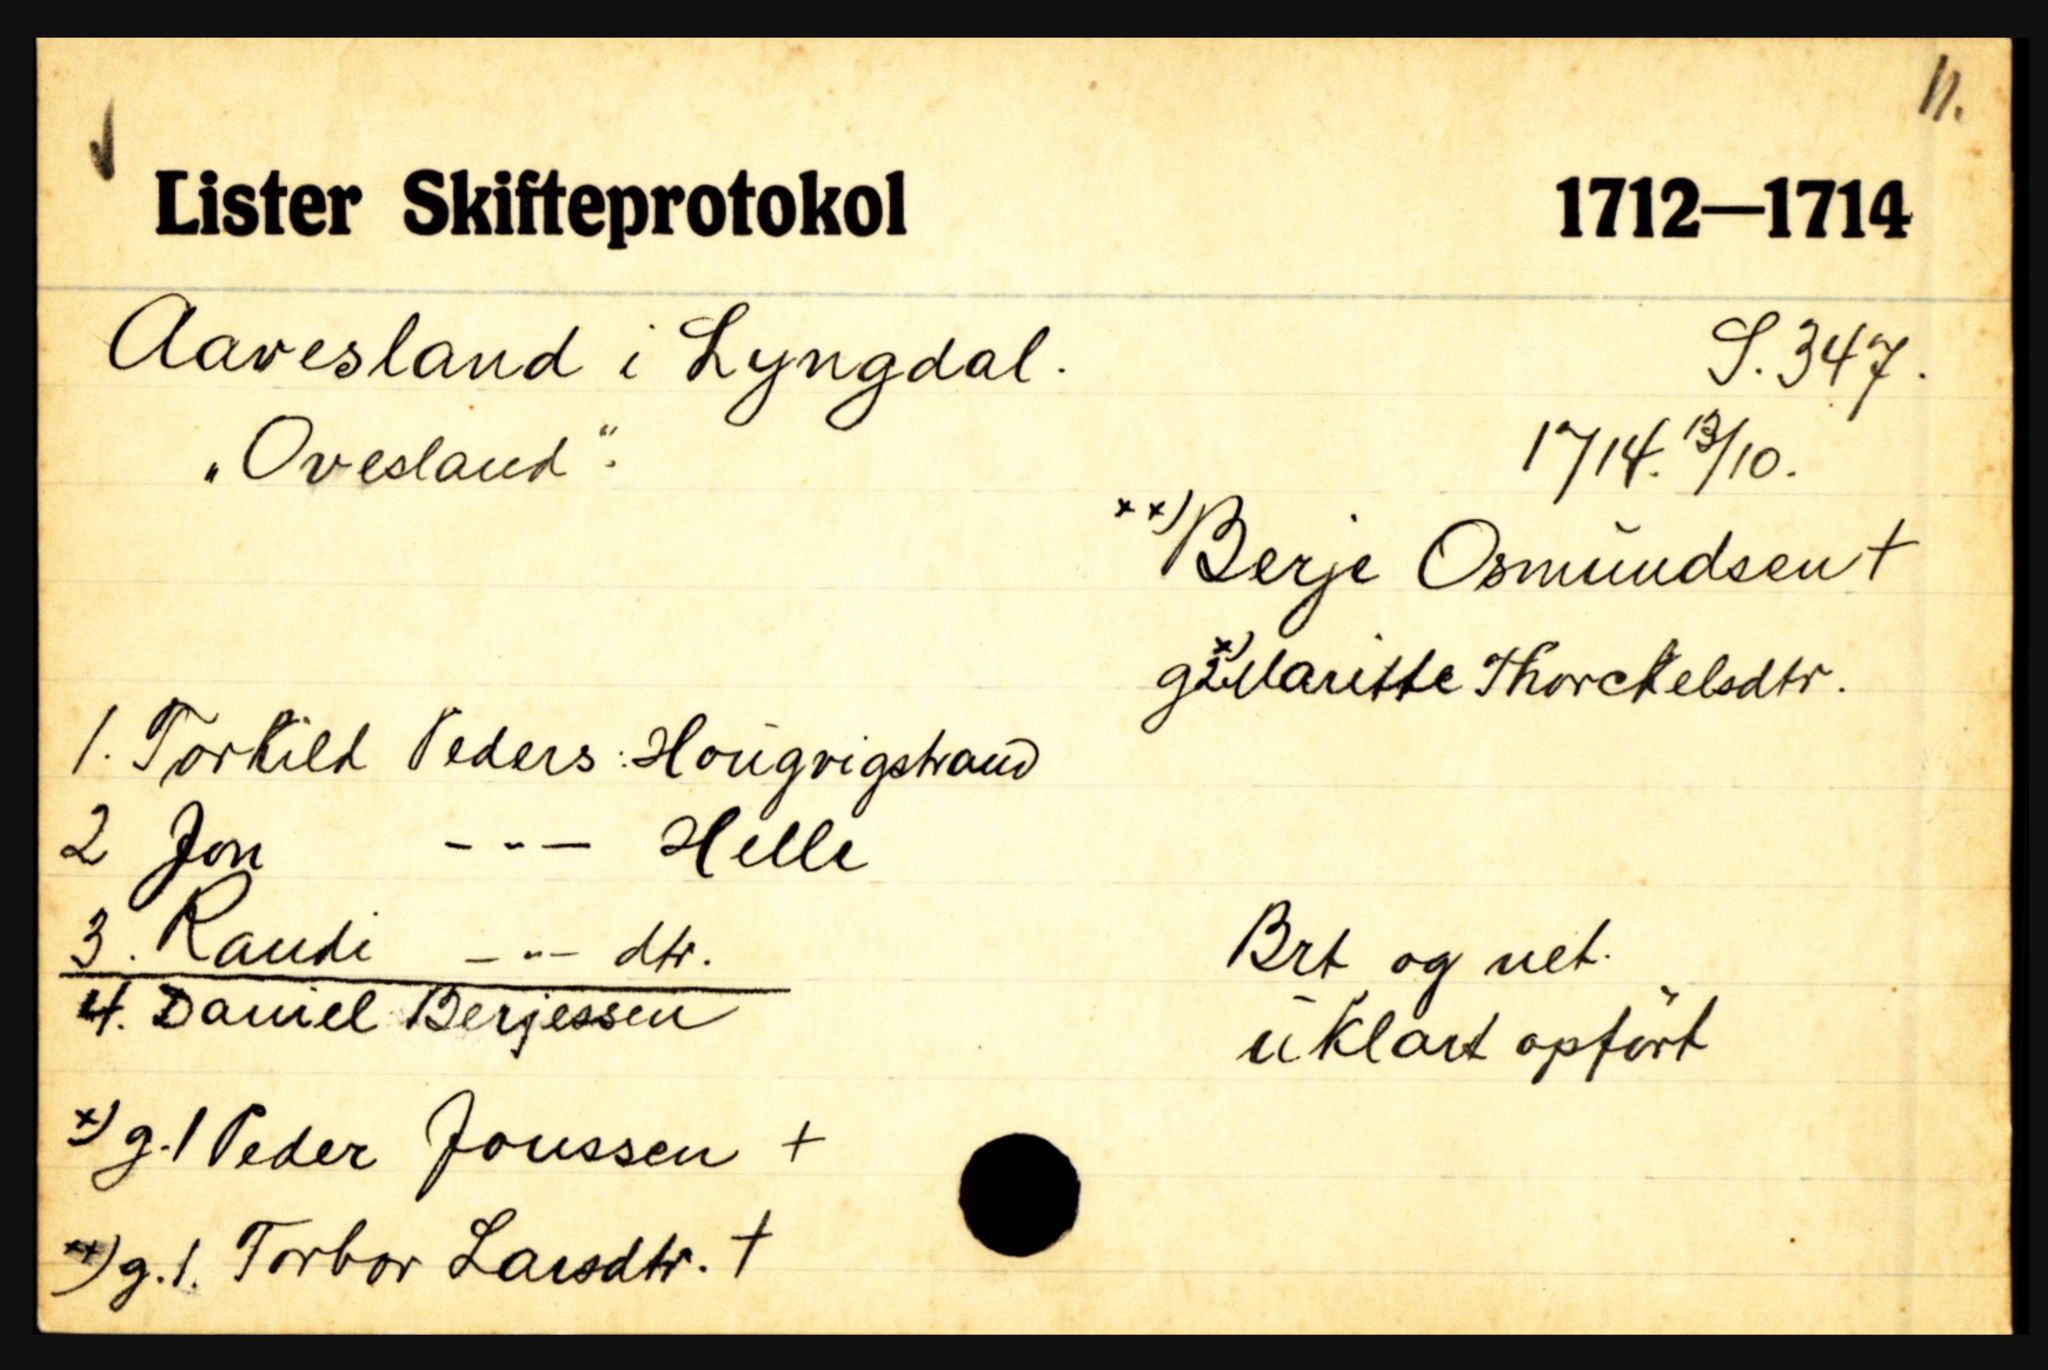 11.
Lister Skifteprotokol 1712—1714
Aavesland i Lyngdal. S. 347.
„Ovesland“. 1714. 13/10.
xx) Berje Osmundsen +
g2 x) Maritte Thorckelsdtr.
1. Torkild Peders: Hougvigstrand
2 Jon - " - Helle
3. Randi - " - dtr. Brt og net.
4. Daniel Berjessen uklart opført
x) g. 1 Peder Jonssen +
xx) g. 1. Torbor Larsdtr. +